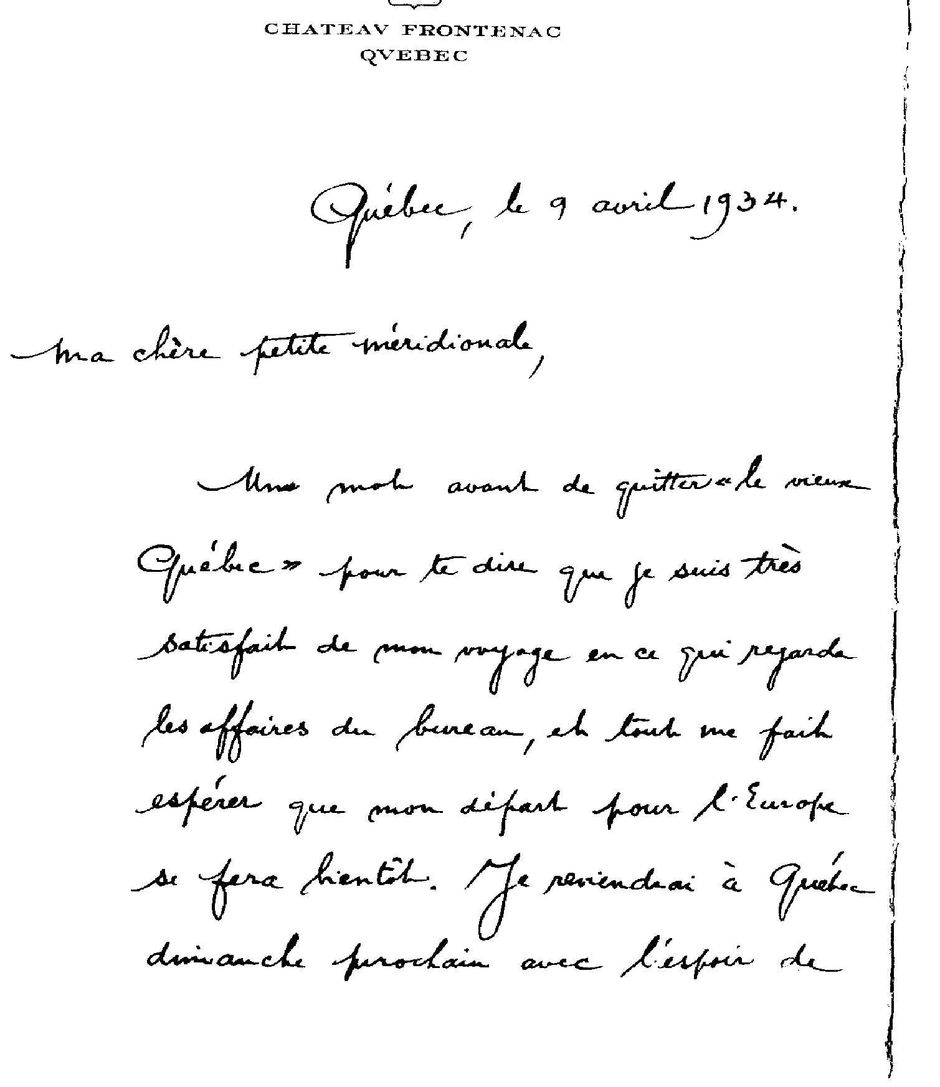 CHATEAV FRONTENAC
QVEBEC
Québec, le 9 avril 1934.
Ma chère petite méridionale,
Un mot avant de quitter "le vieux
Québec" pour te dire que je suis très
satisfait de mon voyage en ce qui regarde
les affaires du bureau, et tout me fait
espérer que mon départ pour l'Europe
se fera bientôt. Je reviendrai à Québec
dimanche prochain avec l'espoir de